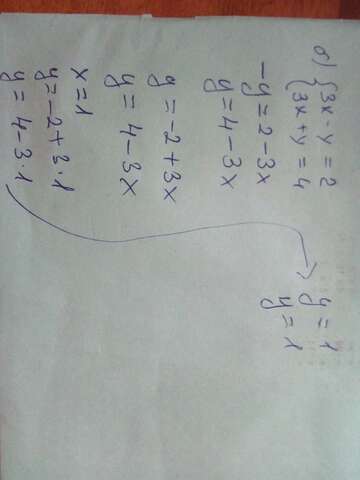 б) { 3x - y = 2
3x + y = 4
-y = 2 - 3x
y = 4 - 3x
y = -2 + 3x
y = 4 - 3x
x = 1
y = -2 + 3 · 1
y = 4 - 3 · 1
y = 1
y = 1